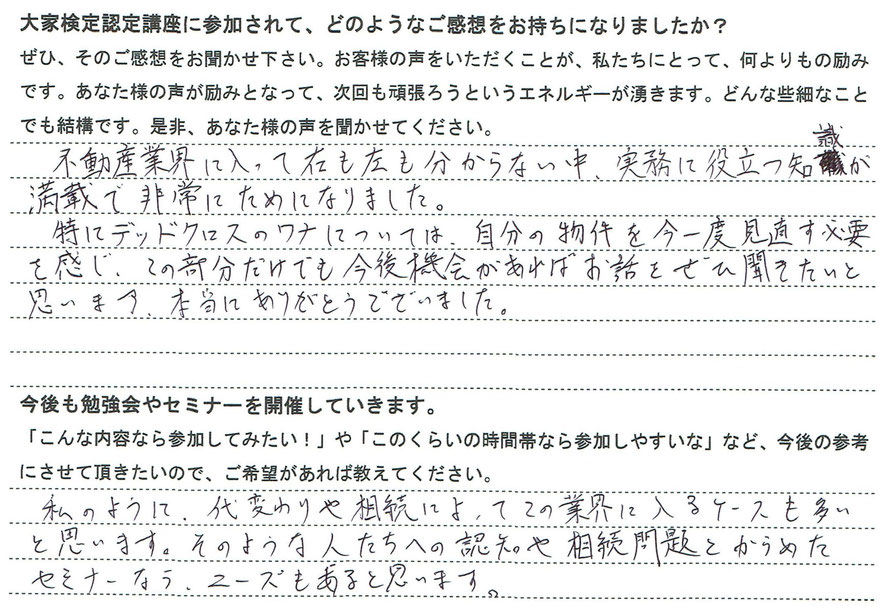 大家検定認定講座に参加されて、どのようなご感想をお持ちになりましたか？
ぜひ、そのご感想をお聞かせ下さい。お客様の声をいただくことが、私たちにとって、何よりもの励み
です。あなた様の声が励みとなって、次回も頑張ろうというエネルギーが湧きます。どんな些細なこと
でも結構です。是非、あなた様の声を聞かせてください。
不動産業界に入って右も左も分からない中、実務に役立つ知識が
満載で非常にためになりました。
特にデッドクロスのワナについては、自分の物件を今一度見直す必要
を感じ、この部分だけでも今後機会があればお話をぜひ聞きたいと
思います、本当にありがとうございました。
今後も勉強会やセミナーを開催していきます。
「こんな内容なら参加してみたい！」や「このくらいの時間帯なら参加しやすいな」など、今後の参考
にさせて頂きたいので、ご希望があれば教えてください。
私のように、代変わりや相続によってこの業界に入るケースも多い
と思います。そのような人たちへの認知や相続問題とからめた
セミナーなら、ニーズもあると思います。